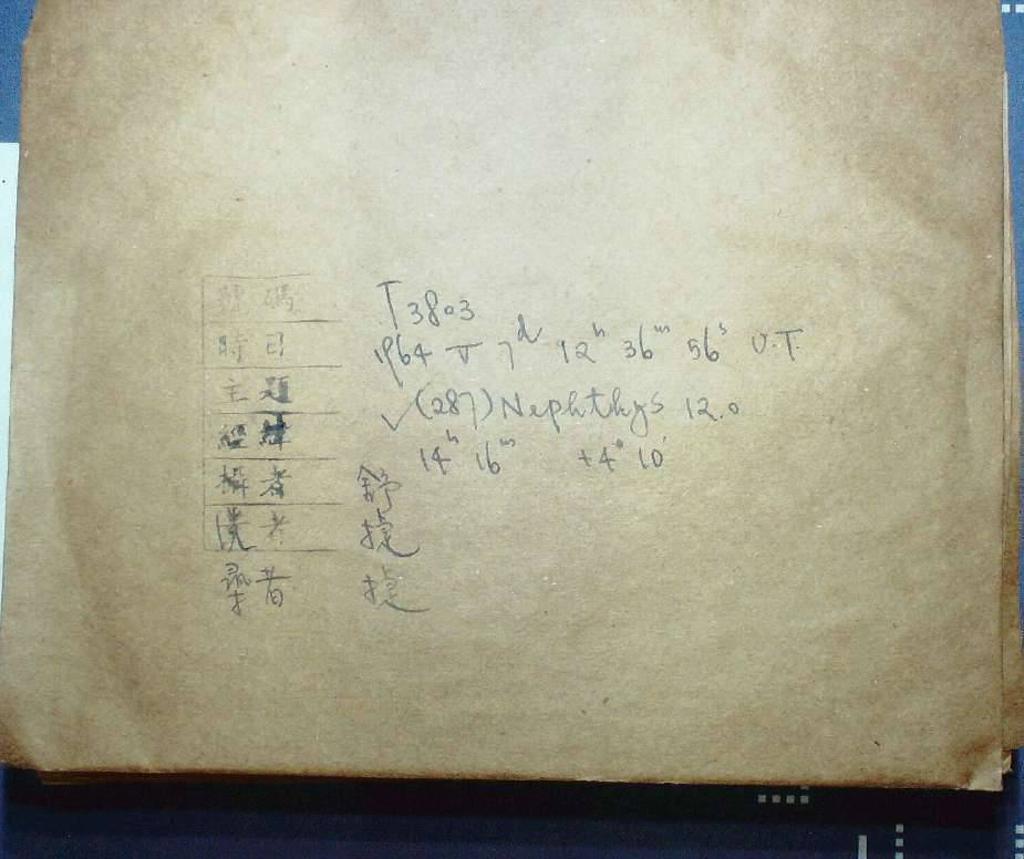 號碼 T3803
時日 1964 V 7ᵈ 12ʰ 36ᵐ 56ˢ U.T.
主題 √(287) Nephthys 12.0
經緯 14ʰ 16ᵐ +4° 10'
攝者 舒
度者 捷
尋者 捷